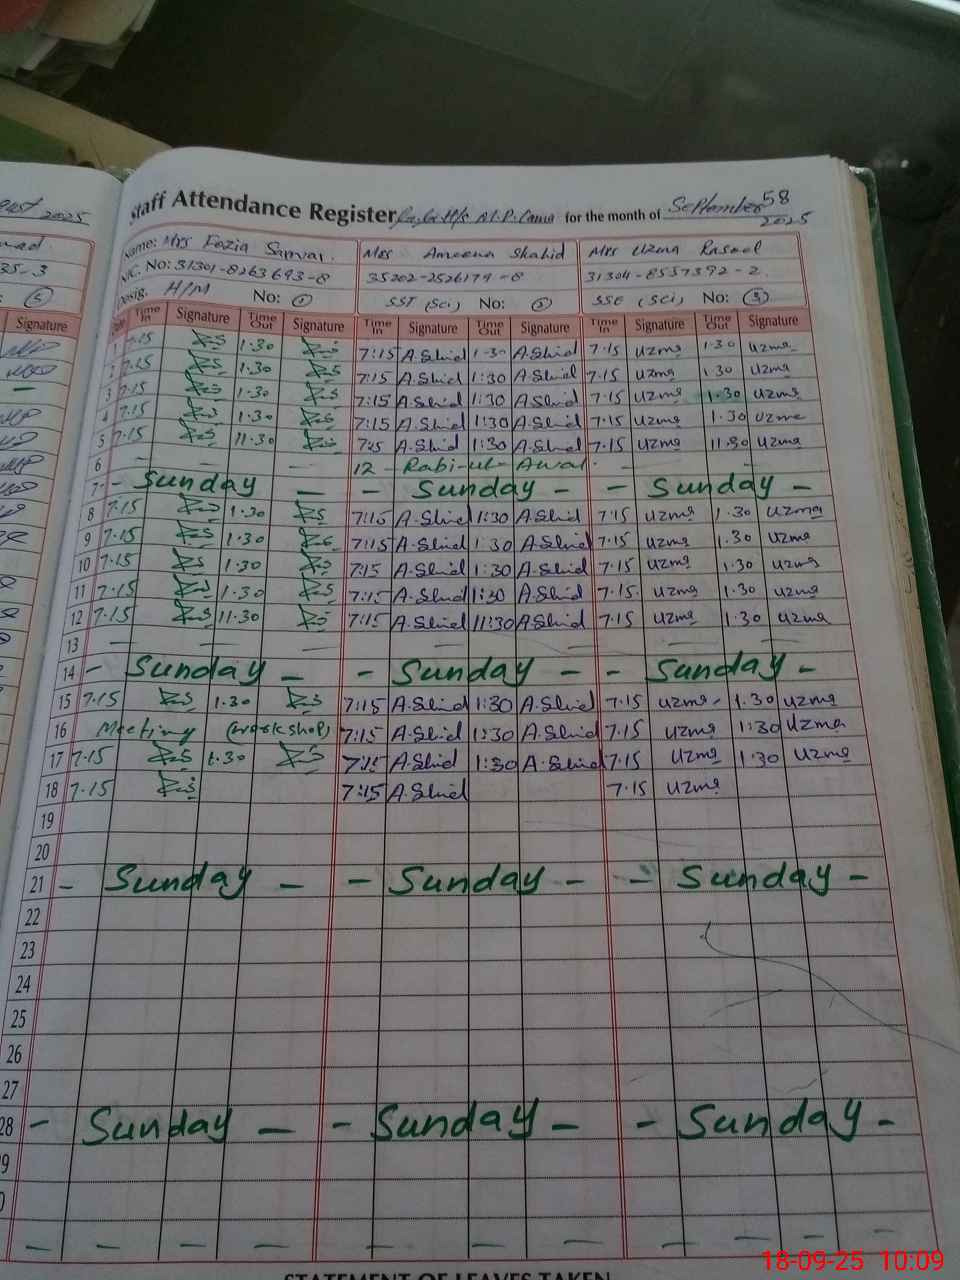 2025
Staff Attendance Register for the month of September 58
2025
Name: Mrs Fozia Sarwar. Mrs Ameena Shahid Mrs Uzma Rasool
NIC. No: 31301-8263693-8 35202-2526179-8 31304-8557392-2.
Desig. H/M No: 1 SST (Sci) No: 2 SSE (Sci) No: 3
Signature Date Time In Signature Time Out Signature Time In Signature Time Out Signature Time In Signature Time Out Signature
1 7.15 1.30 7:15 A.Shid 1:30 A.Shid 7.15 uzma 1.30 uzma
2 7.15 1.30 7:15 A.Shid 1:30 A.Shid 7.15 uzma 1.30 uzma
3 7.15 1.30 7:15 A.Shid 1:30 A.Shid 7.15 uzma 1.30 uzma
4 7.15 1.30 7:15 A.Shid 1:30 A.Shid 7.15 uzma 1.30 uzma
5 7.15 11.30 7:15 A.Shid 1:30 A.Shid 7.15 uzma 11.30 uzma
6 - - - 12 - Rabi-ul-Awal. - -
7 - Sunday - - Sunday - - Sunday -
8 7.15 1.30 7:15 A.Shid 1:30 A.Shid 7.15 uzma 1.30 uzma
9 7.15 1.30 7:15 A.Shid 1:30 A.Shid 7.15 uzma 1.30 uzma
10 7.15 1.30 7:15 A.Shid 1:30 A.Shid 7.15 uzma 1.30 uzma
11 7.15 1.30 7:15 A.Shid 1:30 A.Shid 7.15 uzma 1.30 uzma
12 7.15 11.30 7:15 A.Shid 11:30 A.Shid 7.15 uzma 1.30 uzma
13 - - - - - - -
14 - Sunday - - Sunday - - Sunday -
15 7.15 1.30 7:15 A.Shid 1:30 A.Shid 7.15 uzma 1.30 uzma
16 Meeting (workshop) 7:15 A.Shid 1:30 A.Shid 7.15 uzma 1:30 uzma
17 7.15 1.30 7:15 A.Shid 1:30 A.Shid 7.15 uzma 1.30 uzma
18 7.15 7:15 A.Shid 7.15 uzma
19
20
21 - Sunday - - Sunday - - Sunday -
22
23
24
25
26
27
28 - Sunday - - Sunday - - Sunday -
- - - - - - - - - - - -
STATEMENT OF LEAVES TAKEN
18-09-25 10:09